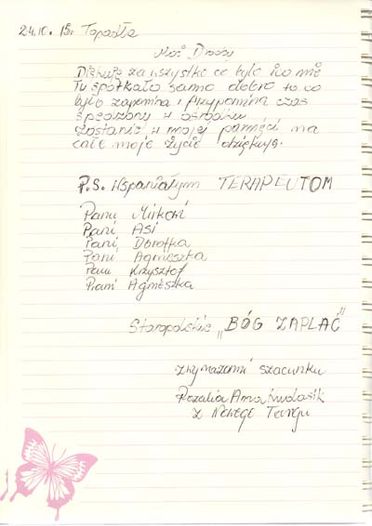 24.10.15. Tapadła
Moi Drodzy
Dziękuję za wszystko co było bo mnie
tu spotkało samo dobro to co
było zapomina i przypomina czas
spędzony w ośrodku
zostanie w mojej pamięci na
całe moje życie dziękuję.
P.S. Wspaniałym TERAPEUTOM
Panu Mirkowi
Pani ASI
Pani Dorotka
Pani Agnieszka
Panu Krzysztof
Pani Agnieszka
Staropolskie „BÓG ZAPŁAĆ"
z wyrazami szacunku
Rozalia Anna
z Nowego Targu